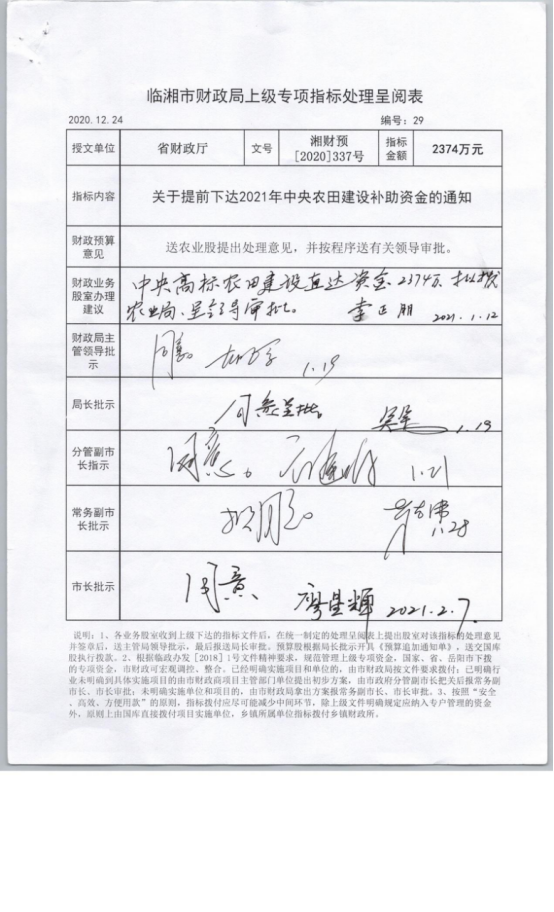 临湘市财政局上级专项指标处理呈阅表
2020.12.24 编号：29
授文单位 省财政厅 文号 湘财预[2020]337号 指标金额 2374万元
指标内容 关于提前下达2021年中央农田建设补助资金的通知
财政预算意见 送农业股提出处理意见，并按程序送有关领导审批。
财政业务股室办理建议 中央高标农田建设直达资金2374万 拟拨
农业局、呈领导审批。 李正朋 2021.1.12
财政局主管领导批示 同意。 1.19
局长批示 同意呈批。 1.19
分管副市长指示 同意。 1.21
常务副市长批示 1.28
市长批示 同意 廖星辉 2021.2.7.
说明：1、各业务股室收到上级下达的指标文件后，在统一制定的处理呈阅表上提出股室对该指标的处理意见
并签章后，送主管局领导批示，最后报送局长审批。预算股根据局长批示开具《预算追加通知单》，送交国库
股执行拨款。2、根据临政办发[2018]1号文件精神要求，规范管理上级专项资金，国家、省、岳阳市下拨
的专项资金，市财政可宏观调控、整合。已经明确实施项目和单位的，由市财政局按文件要求拨付；已明确行
业未明确到具体实施项目的由市财政商项目主管部门单位提出初步方案，由市政府分管副市长把关后报常务副
市长、市长审批；未明确实施单位和项目的，由市财政局拿出方案报常务副市长、市长审批。3、按照“安全
、高效、方便用款”的原则，指标拨付应尽可能减少中间环节，除上级文件明确规定应纳入专户管理的资金
外，原则上由国库直接拨付项目实施单位，乡镇所属单位指标拨付乡镇财政所。